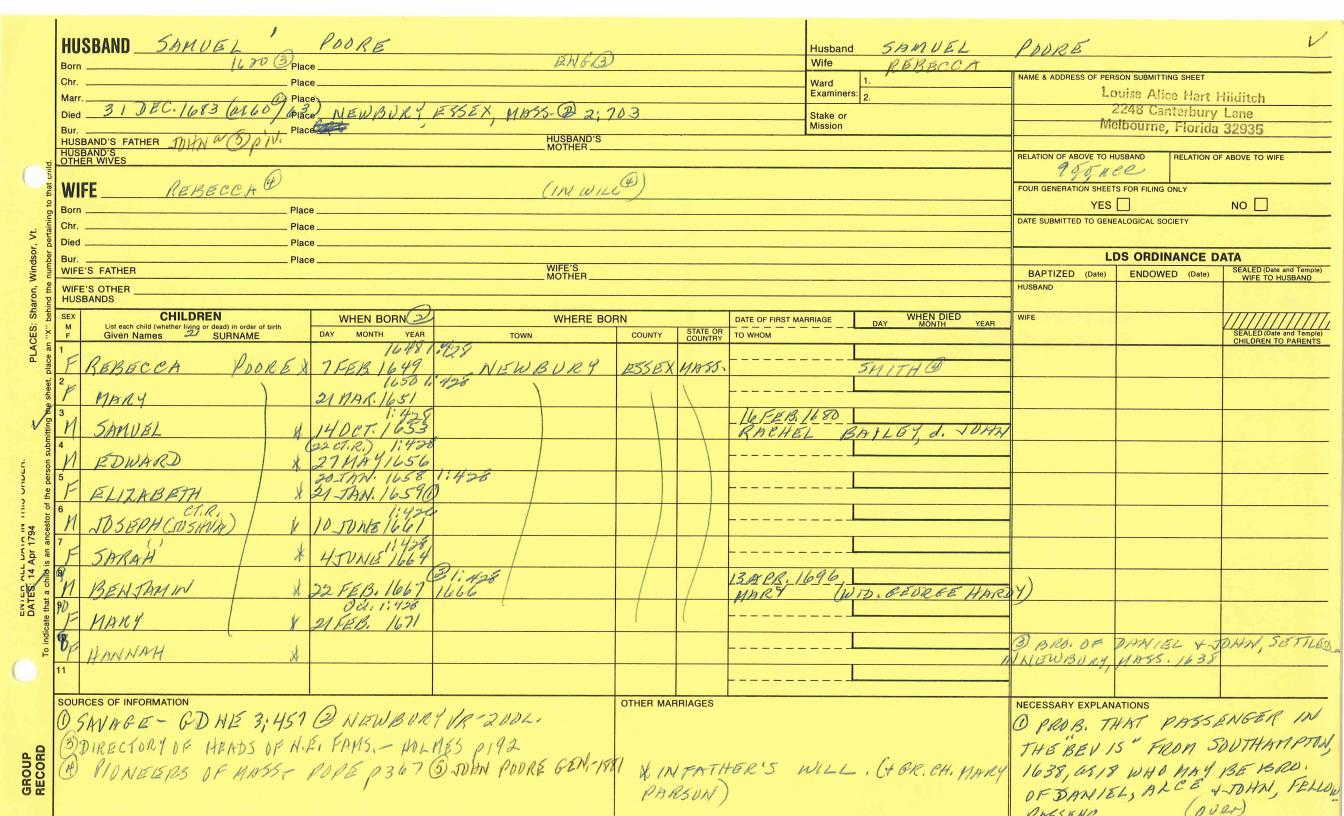 HUSBAND SAMUEL ' POORE
Born 1620 ③ Place ENG ③
Chr. Place
Marr. Place
Died 31 DEC. 1683 (as 60/63) Place NEWBURY ESSEX, MASS. ② 2:703
Bur. Place
HUSBAND'S FATHER JOHN ⑤ piv. HUSBAND'S MOTHER
HUSBAND'S OTHER WIVES
WIFE REBECCA ④ (IN WILL ④)
Born Place
Chr. Place
Died Place
Bur. Place
WIFE'S FATHER WIFE'S MOTHER
WIFE'S OTHER HUSBANDS
Husband SAMUEL POORE
Wife REBECCA
Ward Examiners: 1. 2.
Stake or Mission
NAME & ADDRESS OF PERSON SUBMITTING SHEET
Louise Alice Hart Hilditch
2248 Canterbury Lane
Melbourne, Florida 32935
RELATION OF ABOVE TO HUSBAND RELATION OF ABOVE TO WIFE
FOUR GENERATION SHEETS FOR FILING ONLY
YES NO
DATE SUBMITTED TO GENEALOGICAL SOCIETY
LDS ORDINANCE DATA
BAPTIZED (Date) ENDOWED (Date) SEALED (Date and Temple) WIFE TO HUSBAND
HUSBAND
WIFE
SEALED (Date and Temple) CHILDREN TO PARENTS
SEX M F
CHILDREN
List each child (whether living or dead) in order of birth
Given Names SURNAME
WHEN BORN ②
DAY MONTH YEAR
WHERE BORN
TOWN COUNTY STATE OR COUNTRY
DATE OF FIRST MARRIAGE
TO WHOM
WHEN DIED
DAY MONTH YEAR
1648 1:428
1 F REBECCA POORE X 7 FEB 1649 NEWBURY ESSEX MASS. SMITH ④
1650 1:428
2 F MARY 21 MAR. 1651
1:428 16 FEB. 1680
3 M SAMUEL X 14 OCT. 1653 RACHEL BAILEY, d. JOHN
(22 CT.R.) 1:428
4 M EDWARD X 27 MAY 1656
20 JAN. 1658 1:428
5 F ELIZABETH X 21 JAN. 1659 ①
CT.R. 1:428
6 M JOSEPH (JOSHUA) X 10 JUNE 1661
1:428
7 F SARAH X 4 JUNE 1664
③ 1:428 13 APR. 1696
M BENJAMIN X 22 FEB. 1667 1666 MARY (WID. GEORGE HARDY)
1:428
F MARY X 21 FEB. 1671
F HANNAH X
11
③ BRO. OF DANIEL + JOHN, SETTLED
IN NEWBURY, MASS. 1638
SOURCES OF INFORMATION
① SAVAGE - GDNE 3:457 ② NEWBURY VR - 2 VOL.
③ DIRECTORY OF HEADS OF N.E. FAMS. - HOLMES p192
④ PIONEERS OF MASS - POPE p367 ⑤ JOHN POORE GEN.-1881
OTHER MARRIAGES
X IN FATHER'S WILL. (+ GR. CH. MARY
PARSON)
NECESSARY EXPLANATIONS
① PROB. THAT PASSENGER IN
THE "BEVIS" FROM SOUTHAMPTON,
1638, as 18 WHO MAY BE BRO.
OF DANIEL, ALCE + JOHN, FELLOW
(over)
PLACES: Sharon, Windsor, Vt.
DATES: 14 Apr 1794
To indicate that a child is an ancestor of the person submitting the sheet, place an "X" behind the number pertaining to that child.
GROUP RECORD